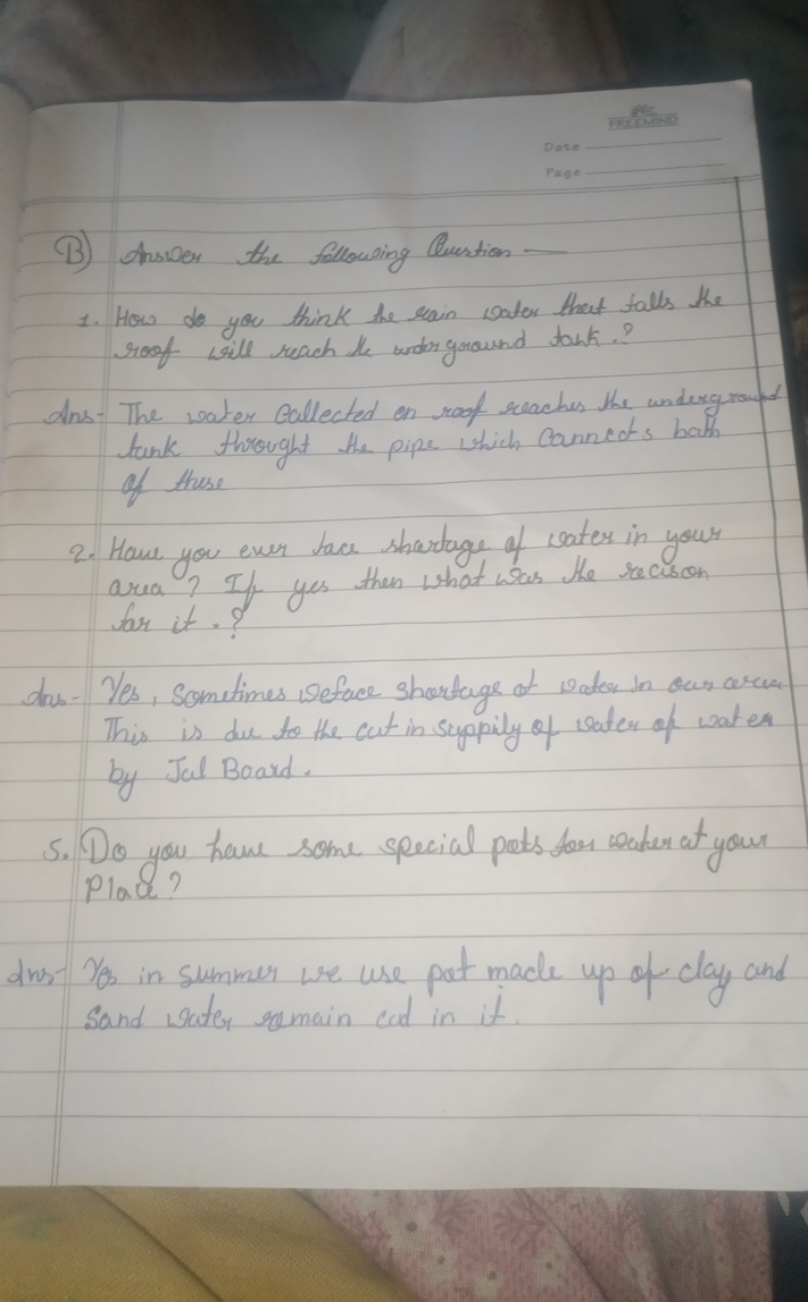 FREEMIND
Date
Page
B) Answer the following Question —
1. How do you think the rain water that falls the
roof will reach the underground tank.?
Ans- The water Collected on roof reaches the underground
tank throught the pipe which Connects both
of these
2. Have you ever face shortage of water in your
area? If yes then what was the recison
for it.?
Ans- Yes, Sometimes weface shortage of water in our area
This is due to the cut in suppily of water of water
by Jal Board.
5. Do you have some special pots for water at your
Place?
Ans- Yes in summer we use pot made up of clay and
Sand water remain cool in it.